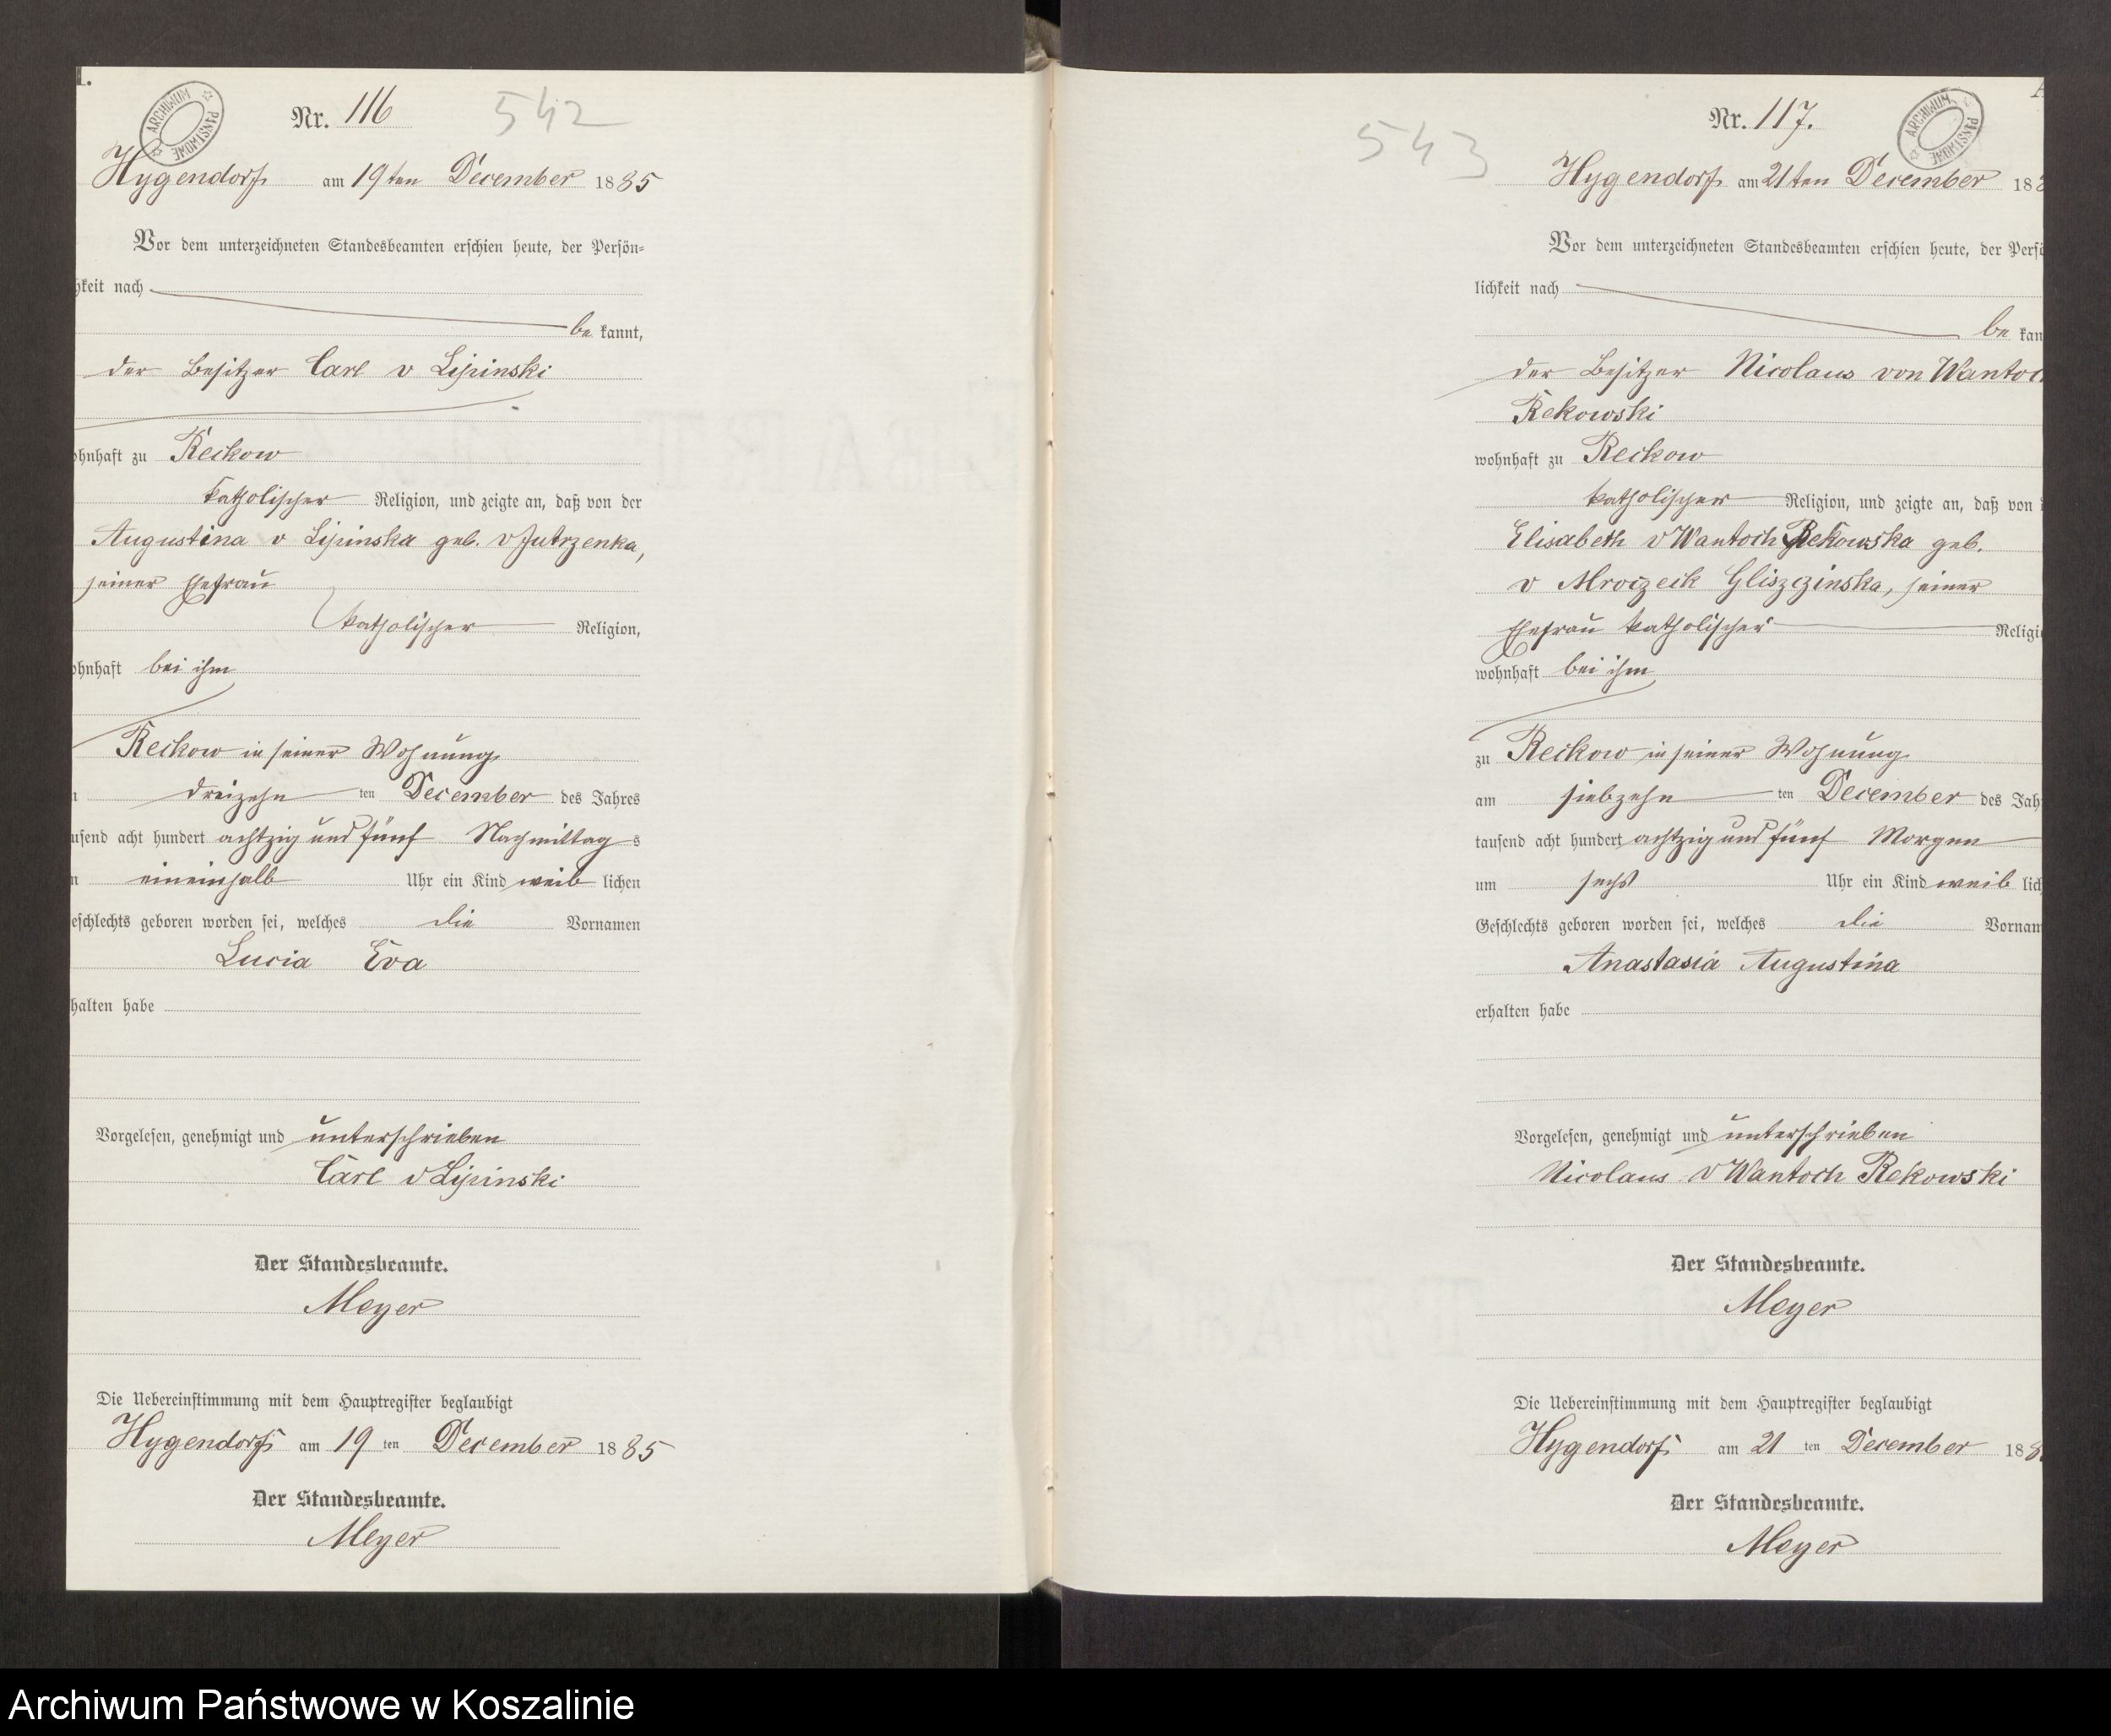 ARCHIWUM PAŃSTWOWE
Nr. 116
542
Hygendorf am 19ten December 1885
Vor dem unterzeichneten Standesbeamten erschien heute, der Persön-
hkeit nach
be kannt,
der Besitzer Carl v Lipinski
ohnhaft zu Reckow
katholischer Religion, und zeigte an, daß von der
Augustina v Lipinska geb. v Jutrzenka,
seiner Ehefrau
katholischer Religion,
ohnhaft bei ihm
Reckow in seiner Wohnung
dreizehn ten December des Jahres
usend acht hundert achtzig und fünf Nachmittag s
eineinhalb Uhr ein Kind weib lichen
eschlechts geboren worden sei, welches die Vornamen
Lucia Eva
halten habe
Vorgelesen, genehmigt und unterschrieben
Carl v Lipinski
Der Standesbeamte.
Meyer
Die Uebereinstimmung mit dem Hauptregister beglaubigt
Hygendorf am 19 ten December 1885
Der Standesbeamte.
Meyer
543
Nr. 117.
ARCHIWUM PAŃSTWOWE
Hygendorf am 21ten December 188
Vor dem unterzeichneten Standesbeamten erschien heute, der Persö
lichkeit nach
be kan
der Besitzer Nicolaus von Wantoch
Rekowski
wohnhaft zu Reckow
katholischer Religion, und zeigte an, daß von
Elisabeth v Wantoch Rekowska geb.
v Mroczeck Gliszczinska, seiner
Ehefrau katholischer Religi
wohnhaft bei ihm
zu Reckow in seiner Wohnung
am siebzehn ten December des Jah
tausend acht hundert achtzig und fünf Morgen
um sechs Uhr ein Kind weib lich
Geschlechts geboren worden sei, welches die Vornam
Anastasia Augustina
erhalten habe
Vorgelesen, genehmigt und unterschrieben
Nicolaus v Wantoch Rekowski
Der Standesbeamte.
Meyer
Die Uebereinstimmung mit dem Hauptregister beglaubigt
Hygendorf am 21 ten December 188
Der Standesbeamte.
Meyer
Archiwum Państwowe w Koszalinie